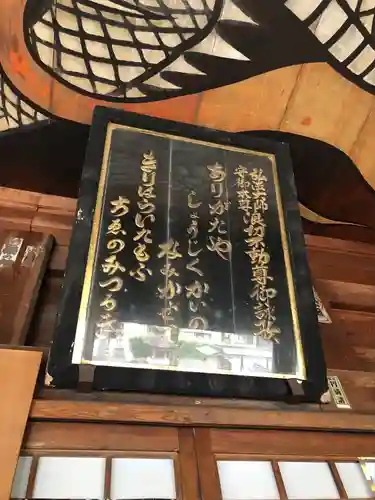 浪切不動尊御詠歌
ありがたや
しょうじくかいの
なみかぜ
きりはらいたもふ
ちゑのみつるぎ